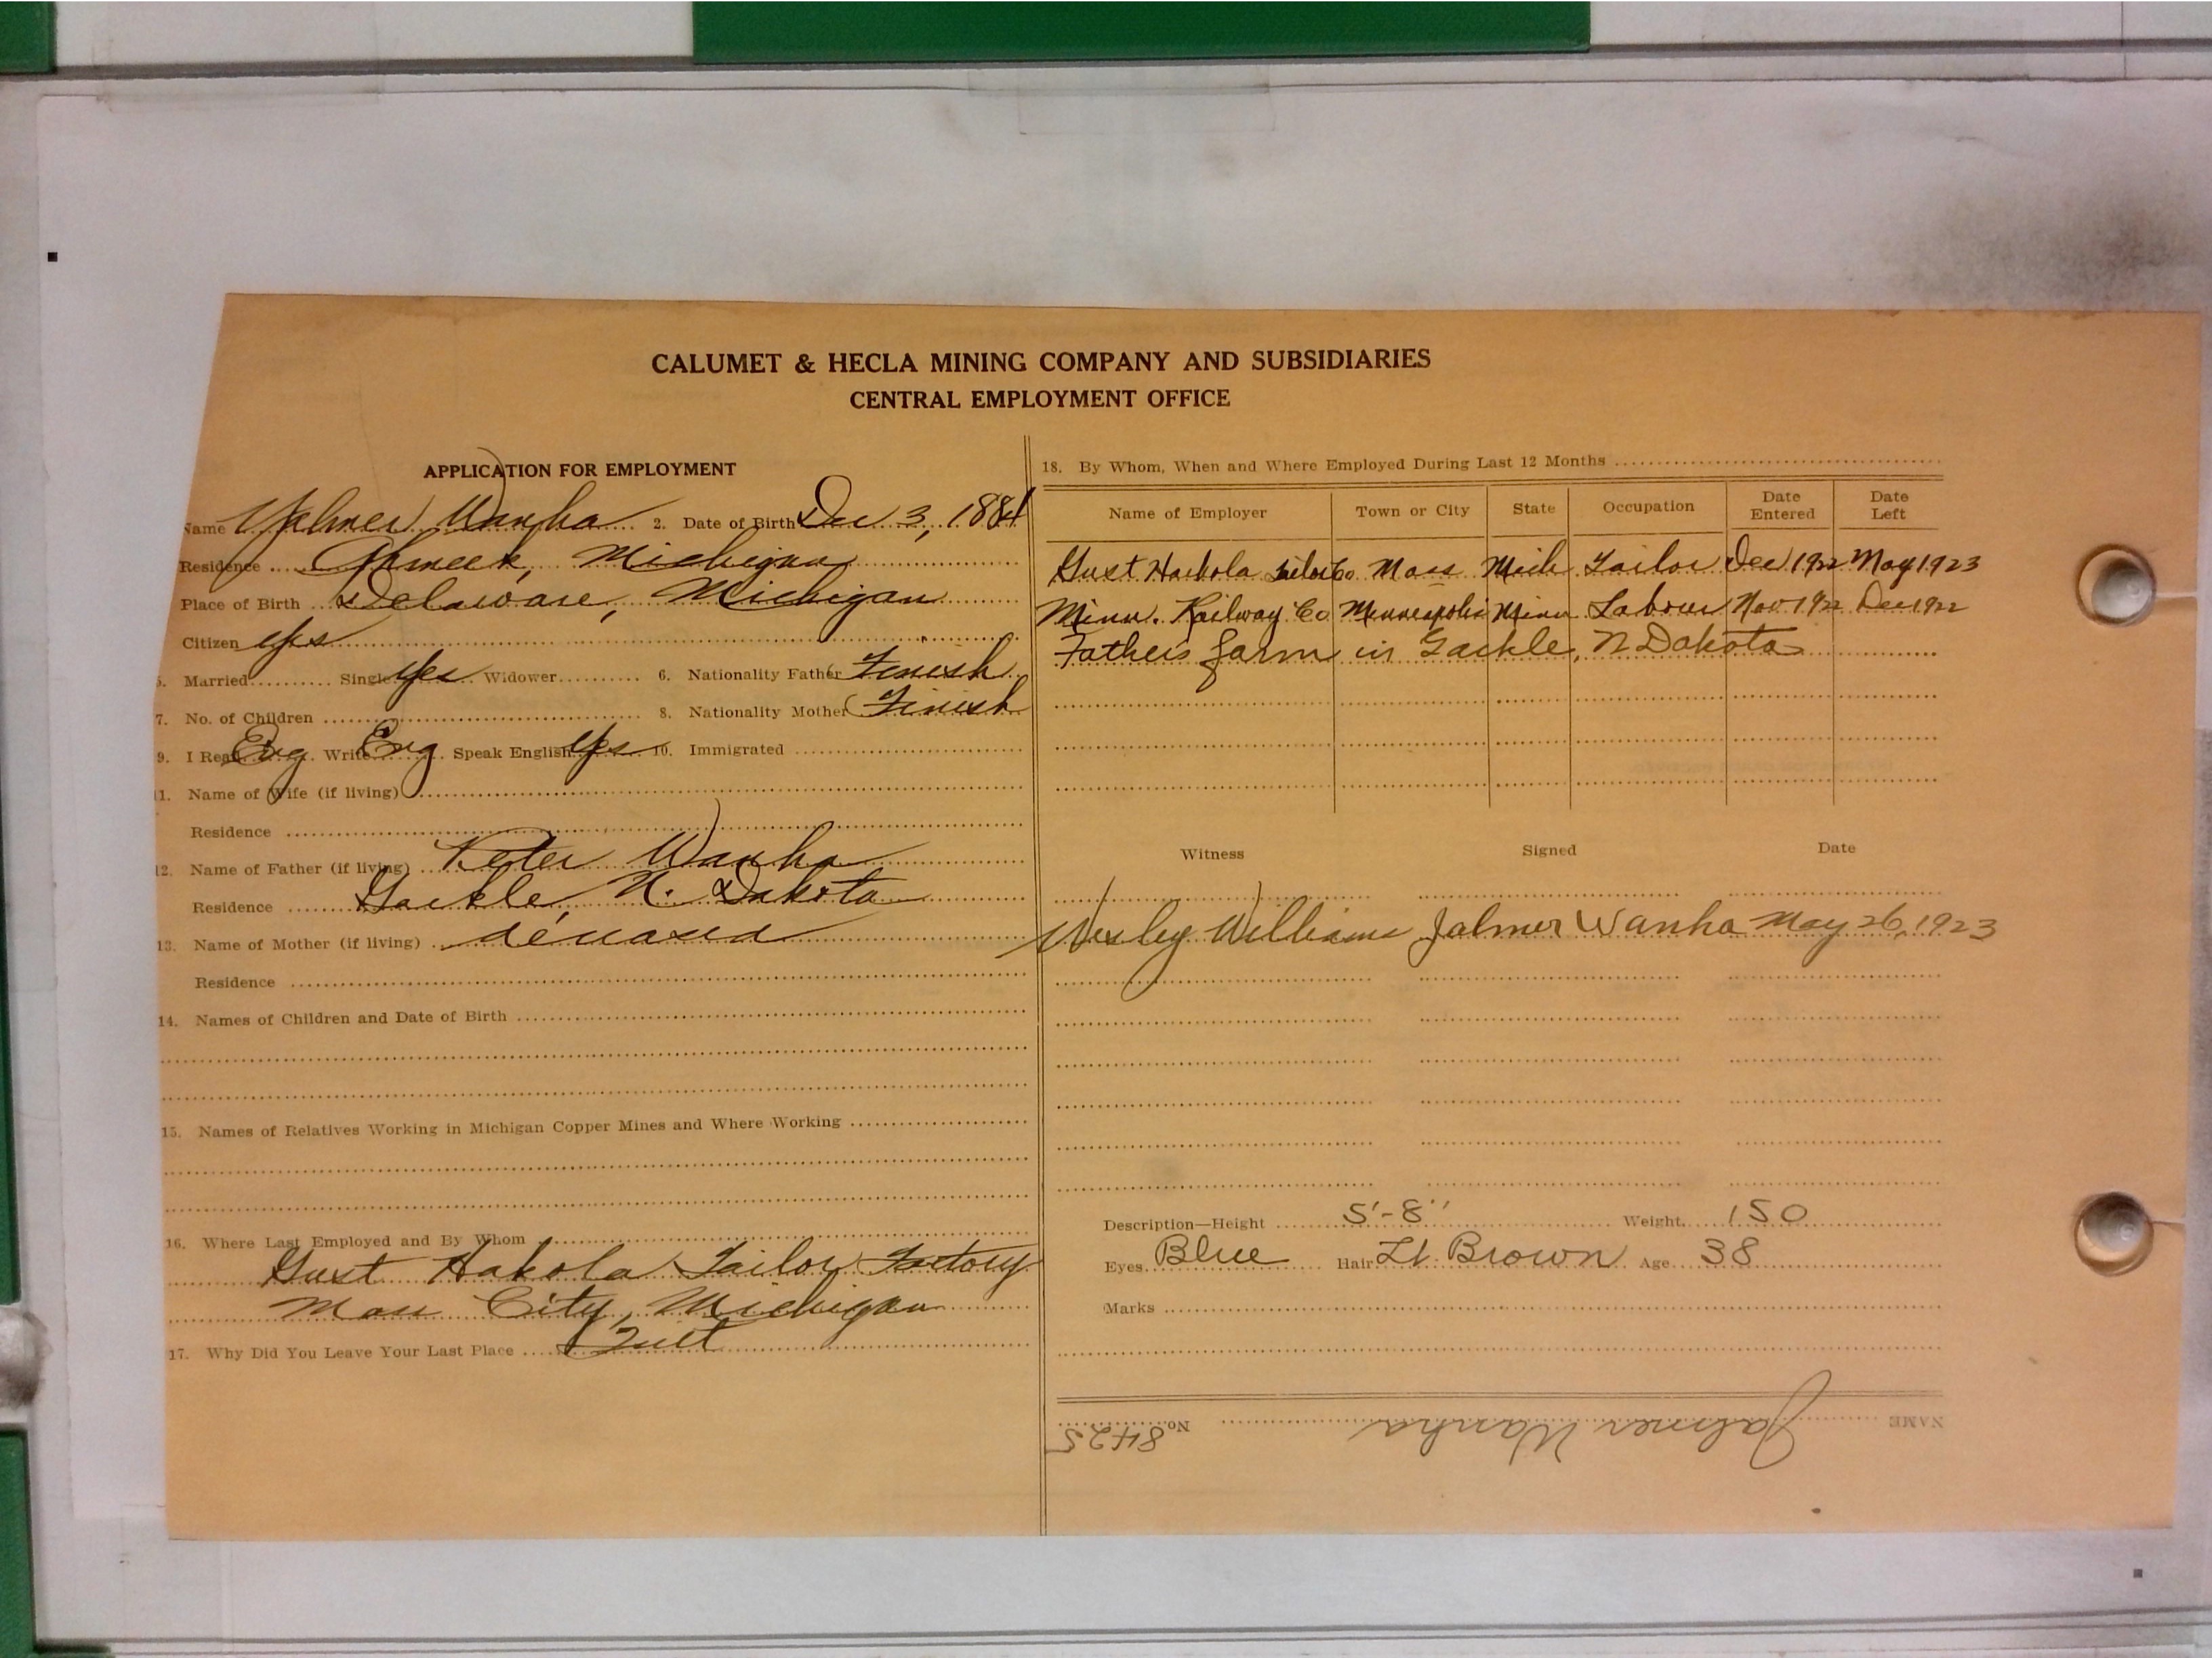 CALUMET & HECLA MINING COMPANY AND SUBSIDIARIES
CENTRAL EMPLOYMENT OFFICE
APPLICATION FOR EMPLOYMENT
Name Yalmer Wanha 2. Date of Birth Dec 3, 1884
Residence Ahmeek, Michigan
Place of Birth Delaware, Michigan
Citizen yes
5. Married Single yes Widower 6. Nationality Father Finish
7. No. of Children 8. Nationality Mother Finish
9. I Read Eng Write Eng Speak English yes 10. Immigrated
11. Name of Wife (if living)
Residence
12. Name of Father (if living) Peter Wanha
Residence Gackle, N. Dakota
13. Name of Mother (if living)
Residence
14. Names of Children and Date of Birth
15. Names of Relatives Working in Michigan Copper Mines and Where Working
16. Where Last Employed and By Whom
Gust Hakola Tailor Factory
Mass City, Michigan
17. Why Did You Leave Your Last Place Quit
18. By Whom, When and Where Employed During Last 12 Months
Name of Employer Town or City State Occupation Date Entered Date Left
Gust Haekola Tailor Co Mass Mich Tailor Dec 1922 May 1923
Minn. Railway Co Minneapolis Minn Labour Nov 1922 Dec 1922
Fathers farm in Gackle, N Dakota
Witness Signed Date
Wesley Williams Jalmer Wanha May 26, 1923
Description—Height 5'-8" Weight 150
Eyes Blue Hair Lt. Brown Age 38
Marks
NAME Jalmer Wanha No. 8425